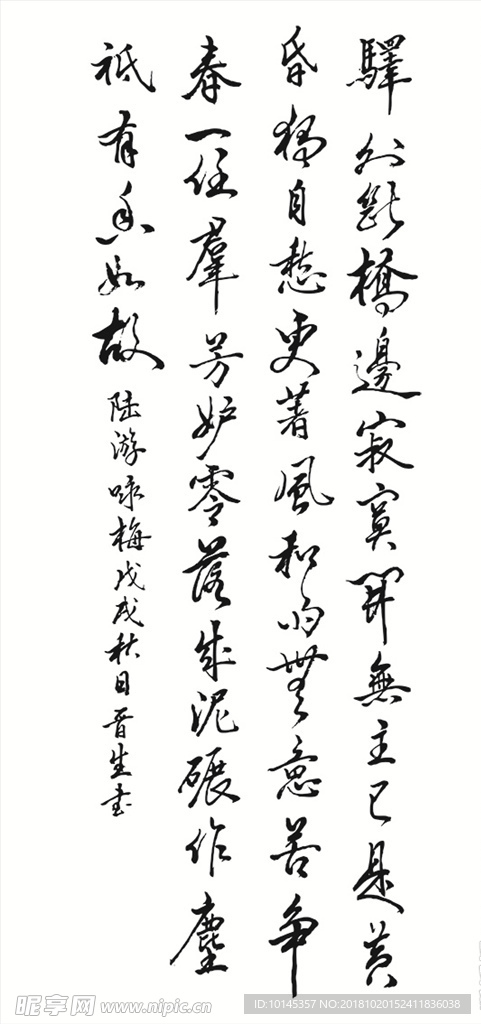 驛外斷橋邊寂寞開無主已是黃
昏獨自愁更著風和雨無意苦爭
春一任羣芳妒零落成泥碾作塵
祗有香如故 陆游咏梅戊戌秋日晋生书
昵享网 www.nipic.cn
ID:10145357 NO:20181020152411836038